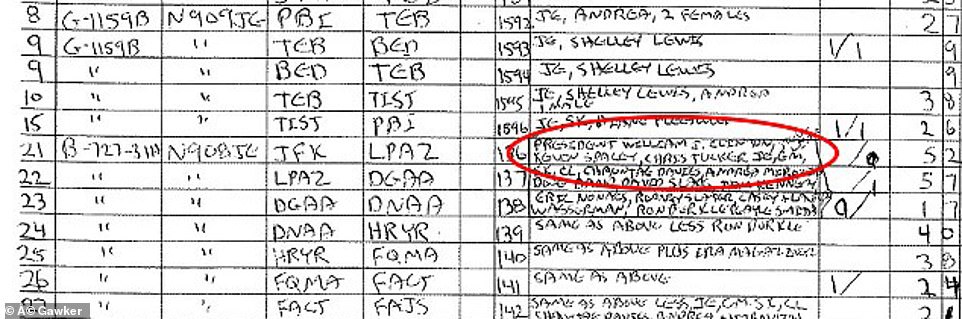 8 G-1159B N909JE PBI TEB 1592 JE, ANDREA, 2 FEMALES 2 7
9 G-1159B " TEB BED 1593 JE, SHELLEY LEWIS 1/1 9
9 " " BED TEB 1594 JE, SHELLEY LEWIS 9
10 " " TEB TIST 1595 JE, SHELLEY LEWIS, ANDREA 3 8
1 MALE
15 " " TIST PBI 1596 JE, SK, 1/1 2 6
21 B-727-31H N908JE JFK LPAZ 136 PRESIDENT WILLIAM J. CLINTON,
KEVIN SPACEY, CHRIS TUCKER JE, GM, 5 2
22 " " LPAZ DGAA 137 SK, CL, CHAUNTAE DAVIES, ANDREA 5 7
DOUG BAND, DAVID
23 " " DGAA DNAA 138 ERIC NONACS, RODNEY SLATER, CASEY 1 7
WASSERMAN, RON BURKLE
24 " " DNAA HRYR 139 SAME AS ABOVE LESS RON BURKLE 4 0
25 " " HRYR FQMA 140 SAME AS ABOVE PLUS IRA MAGAZINER 3 8
26 " " FQMA FACT 141 SAME AS ABOVE 1/ 2 4
" " FACT FAJS 142 SAME AS ABOVE LESS, JE, GM, SK, CL
© AC Gawker